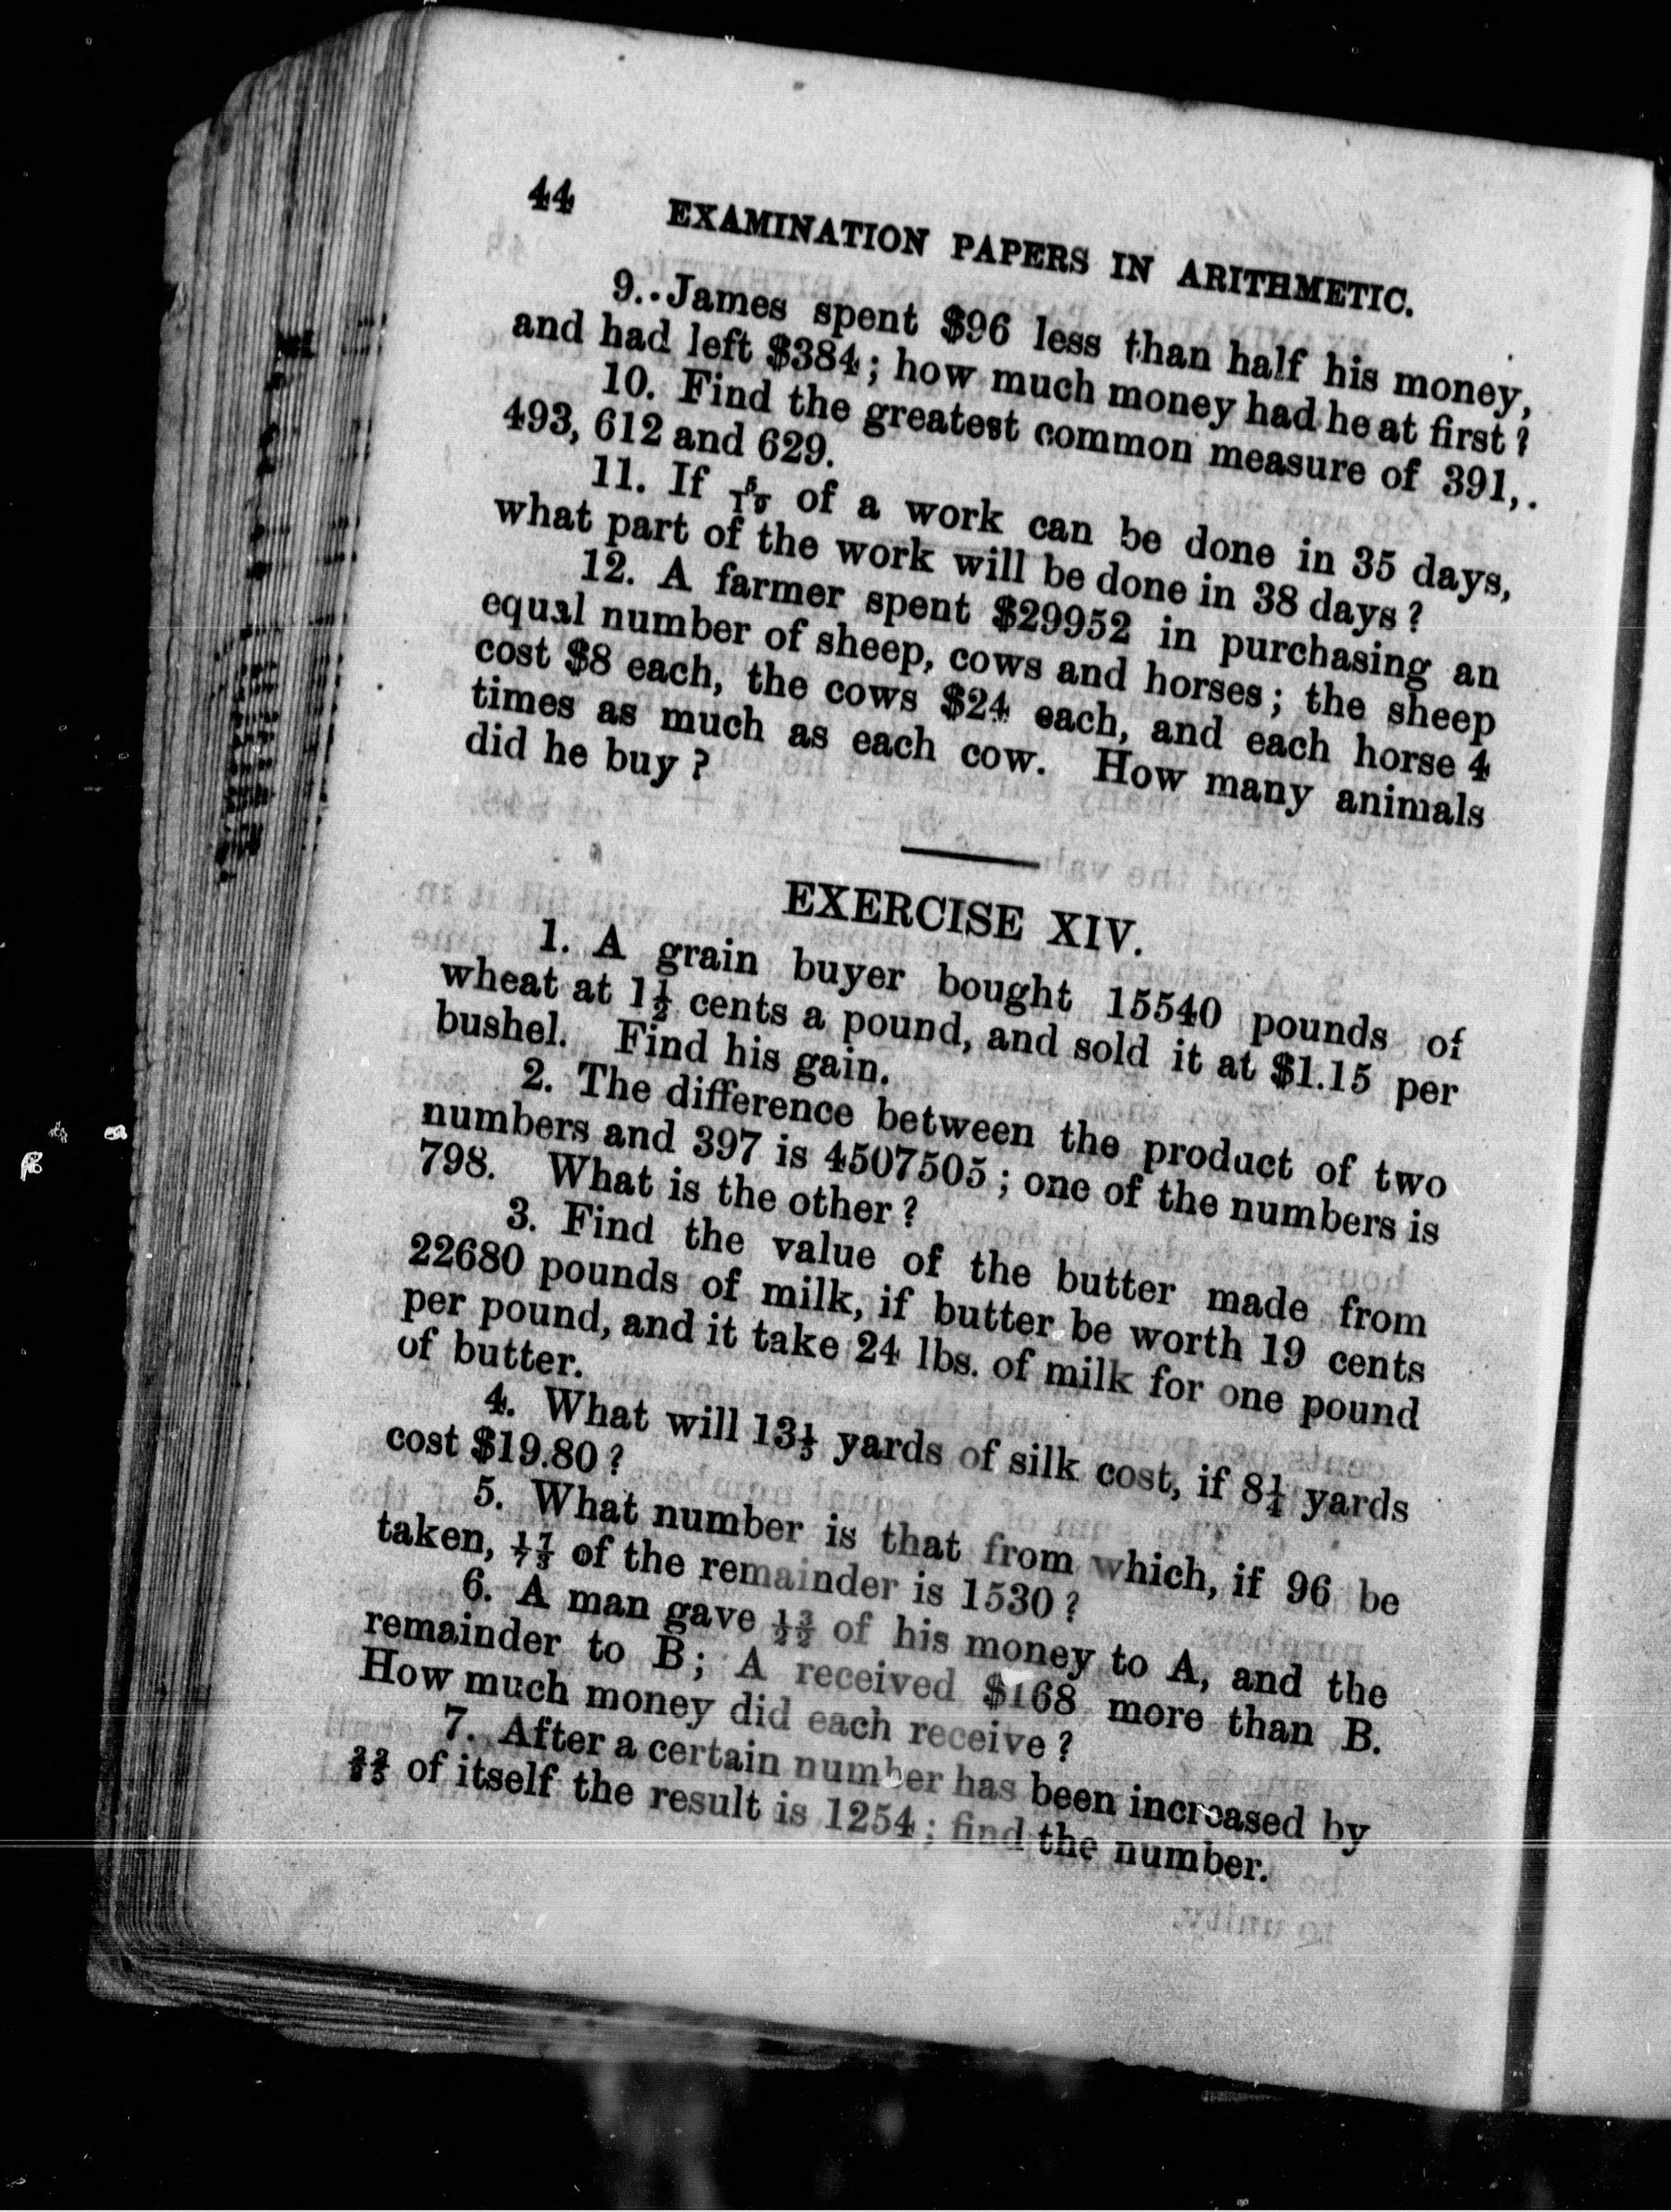 44 EXAMINATION PAPERS IN ARITHMETIC.
9. James spent $96 less than half his money,
and had left $384; how much money had he at first?
10. Find the greatest common measure of 391,
493, 612 and 629.
11. If of a work can be done in 35 days,
what part of the work will be done in 38 days?
12. A farmer spent $29952 in purchasing an
equal number of sheep, cows and horses; the sheep
cost $8 each, the cows $24 each, and each horse 4
times as much as each cow. How many animals
did he buy?
EXERCISE XIV.
1. A grain buyer bought 15540 pounds of
wheat at 1½ cents a pound, and sold it at $1.15 per
bushel. Find his gain.
2. The difference between the product of two
numbers and 397 is 4507505; one of the numbers is
798. What is the other?
3. Find the value of the butter made from
22680 pounds of milk, if butter be worth 19 cents
per pound, and it take 24 lbs. of milk for one pound
of butter.
4. What will 13⅓ yards of silk cost, if 8¼ yards
cost $19.80?
5. What number is that from which, if 96 be
taken, 17/73 of the remainder is 1530?
6. A man gave 13/22 of his money to A, and the
remainder to B; A received $168 more than B.
How much money did each receive?
7. After a certain number has been increased by
of itself the result is 1254; find the number.